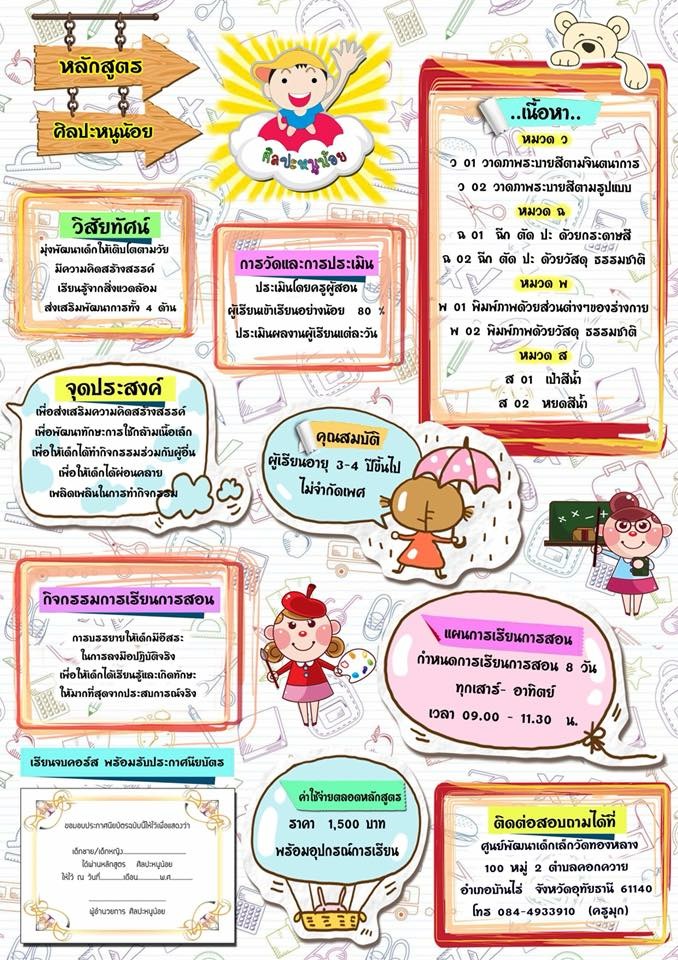 หลักสูตร
ศิลปะหนูน้อย
ศิลปะหนูน้อย
..เนื้อหา..
หมวด ว
ว 01 วาดภาพระบายสีตามจินตนาการ
ว 02 วาดภาพระบายสีตามรูปแบบ
หมวด ฉ
ฉ 01 ฉีก ตัด ปะ ด้วยกระดาษสี
ฉ 02 ฉีก ตัด ปะ ด้วยวัสดุ ธรรมชาติ
หมวด พ
พ 01 พิมพ์ภาพด้วยส่วนต่างๆของร่างกาย
พ 02 พิมพ์ภาพด้วยวัสดุ ธรรมชาติ
หมวด ส
ส 01 เป่าสีน้ำ
ส 02 หยดสีน้ำ
วิสัยทัศน์
มุ่งพัฒนาเด็กให้เติบโตตามวัย
มีความคิดสร้างสรรค์
เรียนรู้จากสิ่งแวดล้อม
ส่งเสริมพัฒนาการทั้ง 4 ด้าน
การวัดและการประเมิน
ประเมินโดยครูผู้สอน
ผู้เรียนเข้าเรียนอย่างน้อย 80 %
ประเมินผลงานผู้เรียนแต่ละวัน
จุดประสงค์
เพื่อส่งเสริมความคิดสร้างสรรค์
เพื่อพัฒนาทักษะการใช้กล้ามเนื้อเล็ก
เพื่อให้เด็กได้ทำกิจกรรมร่วมกับผู้อื่น
เพื่อให้เด็กได้ผ่อนคลาย
เพลิดเพลินในการทำกิจกรรม
คุณสมบัติ
ผู้เรียนอายุ 3-4 ปีขึ้นไป
ไม่จำกัดเพศ
กิจกรรมการเรียนการสอน
การบรรยายให้เด็กมีอิสระ
ในการลงมือปฏิบัติจริง
เพื่อให้เด็กได้เรียนรู้และเกิดทักษะ
ให้มากที่สุดจากประสบการณ์จริง
แผนการเรียนการสอน
กำหนดการเรียนการสอน 8 วัน
ทุกเสาร์- อาทิตย์
เวลา 09.00 - 11.30 น.
เรียนจบคอร์ส พร้อมรับประกาศนียบัตร
ขอมอบประกาศนียบัตรฉบับนี้ให้ไว้เพื่อแสดงว่า
เด็กชาย/เด็กหญิง
ได้ผ่านหลักสูตร ศิลปะหนูน้อย
ให้ไว้ ณ วันที่ เดือน พ.ศ.
ผู้อำนวยการ ศิลปะหนูน้อย
ค่าใช้จ่ายตลอดหลักสูตร
ราคา 1,500 บาท
พร้อมอุปกรณ์การเรียน
ติดต่อสอบถามได้ที่
ศูนย์พัฒนาเด็กเล็กวัดทองหลาง
100 หมู่ 2 ตำบลคอกควาย
อำเภอบ้านไร่ จังหวัดอุทัยธานี 61140
โทร 084-4933910 (ครูมุก)